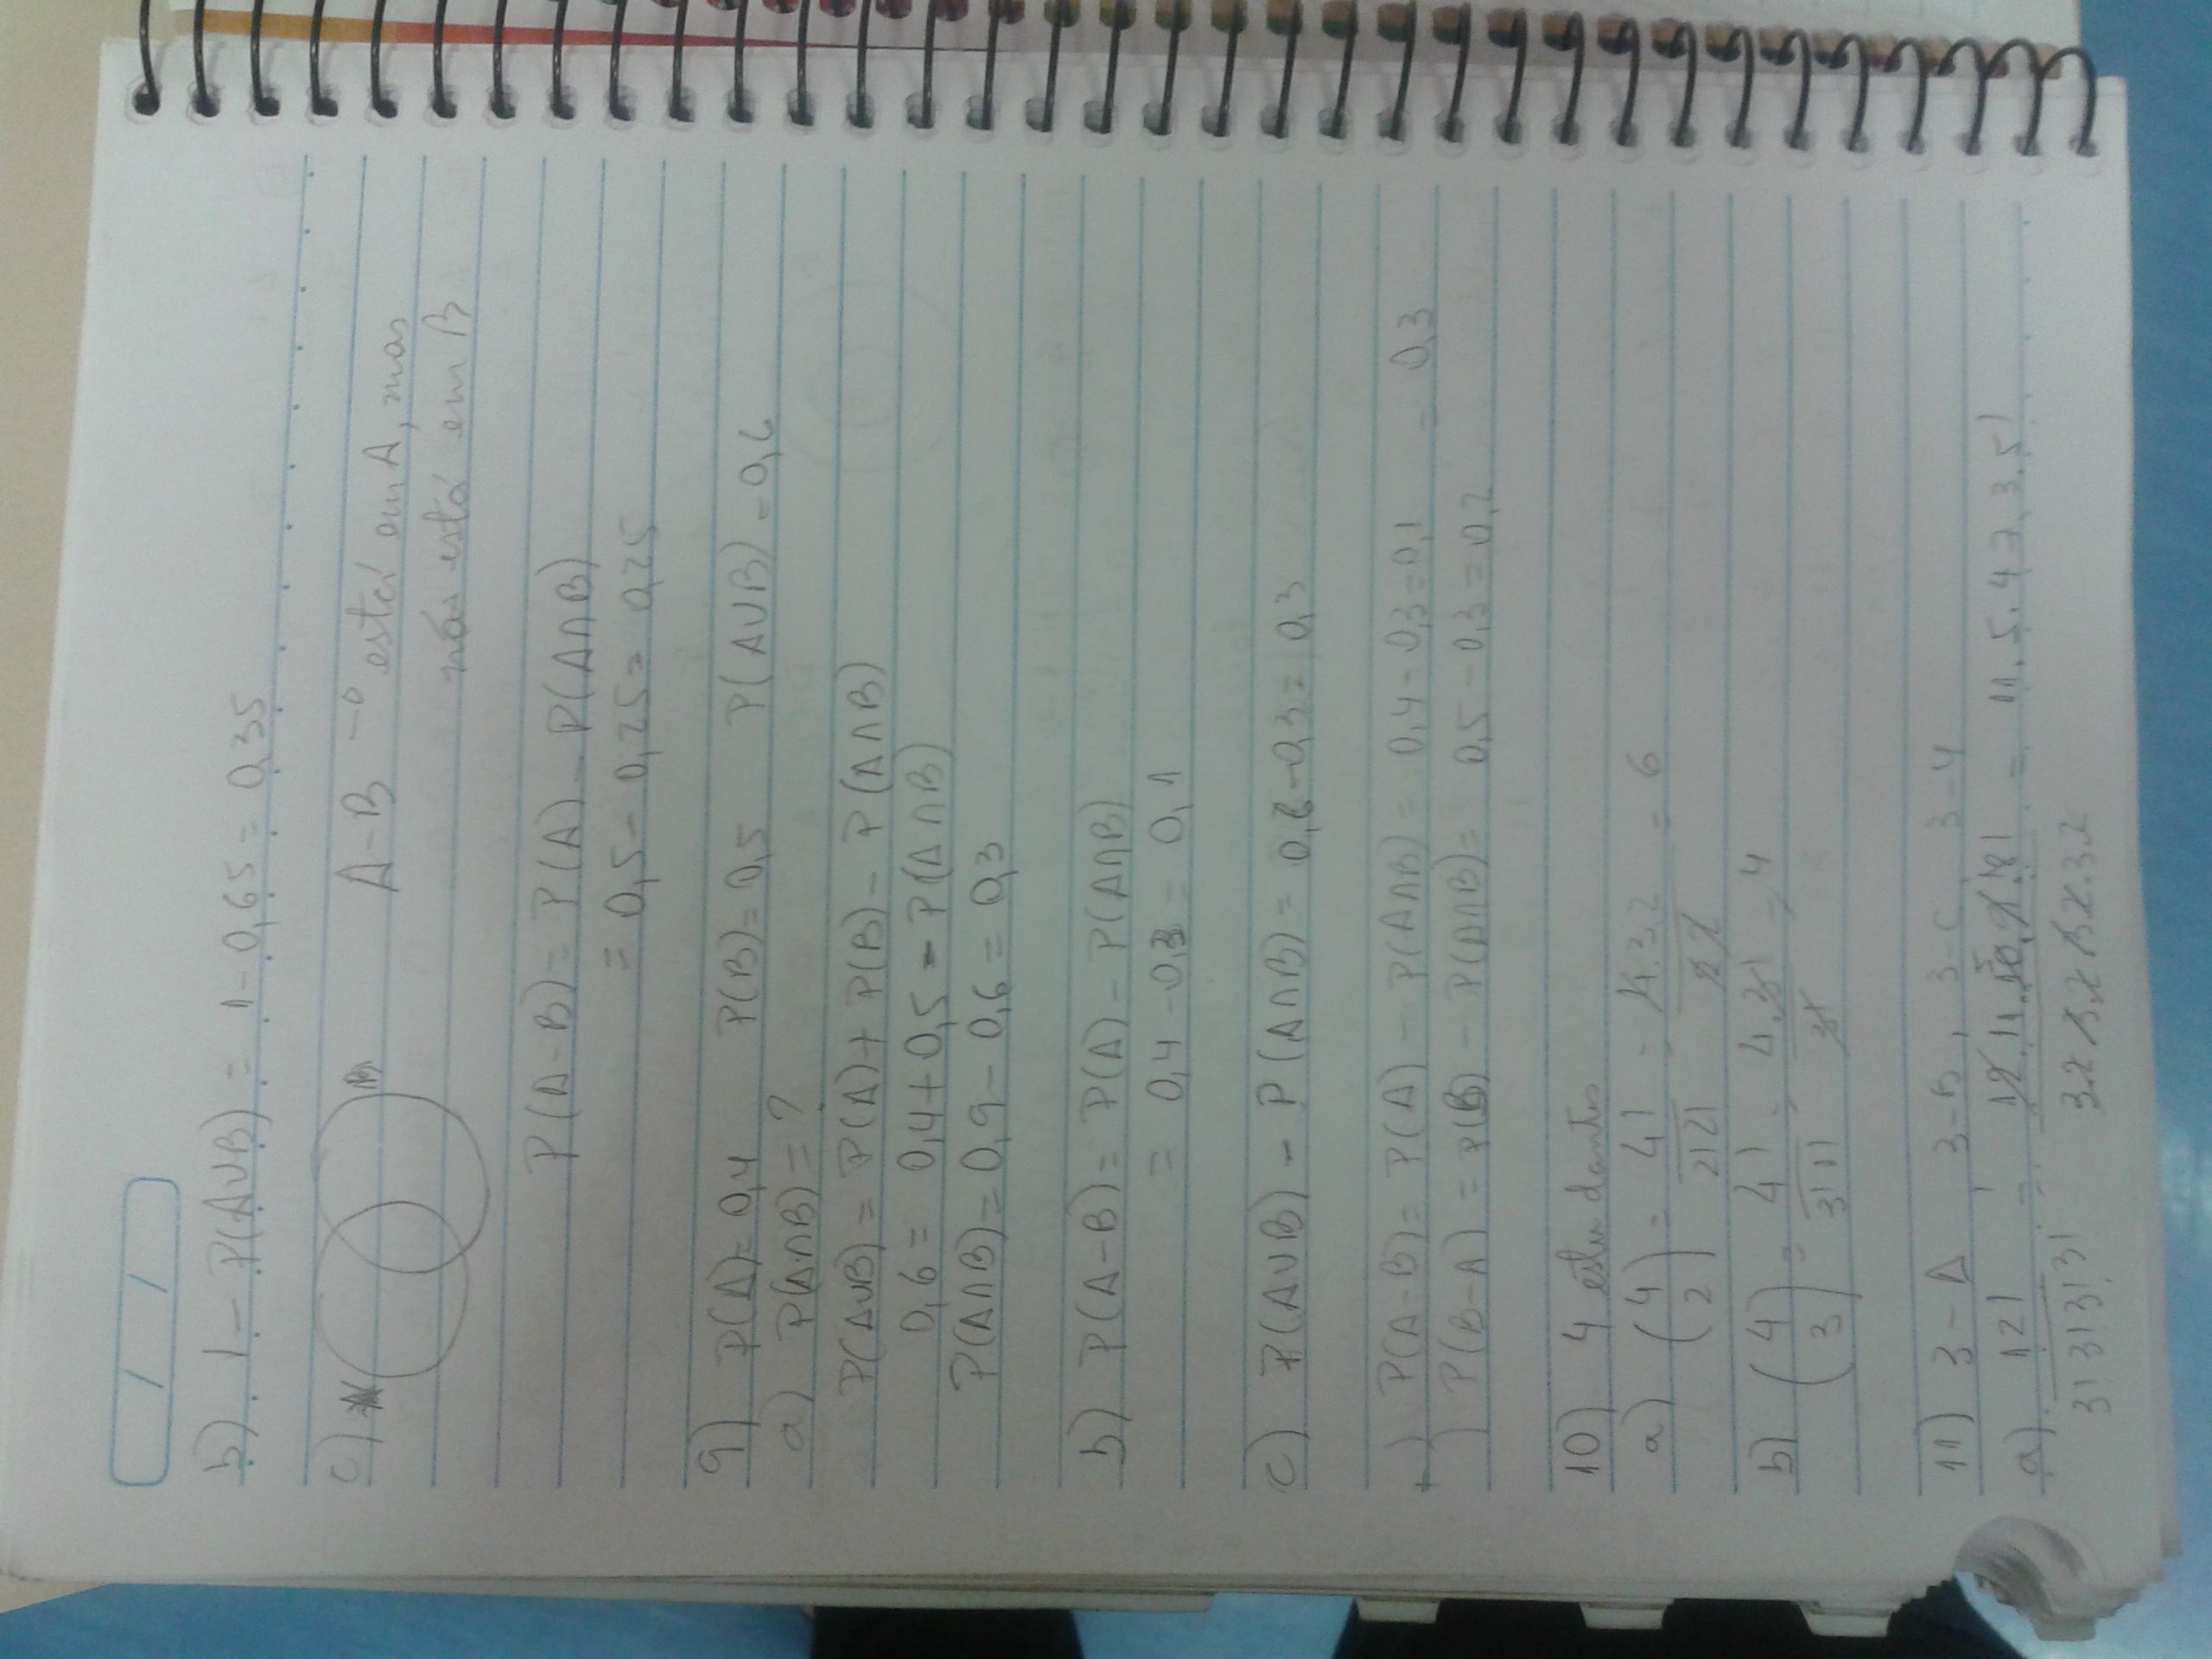 b) 1 - P(A∪B) = 1 - 0,65 = 0,35
c) B A-B → está em A, mas
não está em B
P(A-B) = P(A) - P(A∩B)
= 0,5 - 0,25 = 0,25
9) P(A) = 0,4 P(B) = 0,5 P(A∪B) = 0,6
a) P(A∩B) = ?
P(A∪B) = P(A) + P(B) - P(A∩B)
0,6 = 0,4 + 0,5 - P(A∩B)
P(A∩B) = 0,9 - 0,6 = 0,3
b) P(A-B) = P(A) - P(A∩B)
= 0,4 - 0,3 = 0,1
c) P(A∪B) - P(A∩B) = 0,6 - 0,3 = 0,3
P(A-B) = P(A) - P(A∩B) = 0,4 - 0,3 = 0,1 = 0,3
P(B-A) = P(B) - P(A∩B) = 0,5 - 0,3 = 0,2
10) 4 estudantes
a) (4 2) = 4! / 2!2! = 4.3.2 / 2.2 = 6
b) (4 3) = 4! / 3!1! = 4.3! / 3! = 4
11) 3-A 3-B, 3-C 3-4
a) 12! / 3!3!3!3! = 12.11.10.9.8! / 3.2.3.2.3.2.3.2 = 11.5.4.7.3.5!